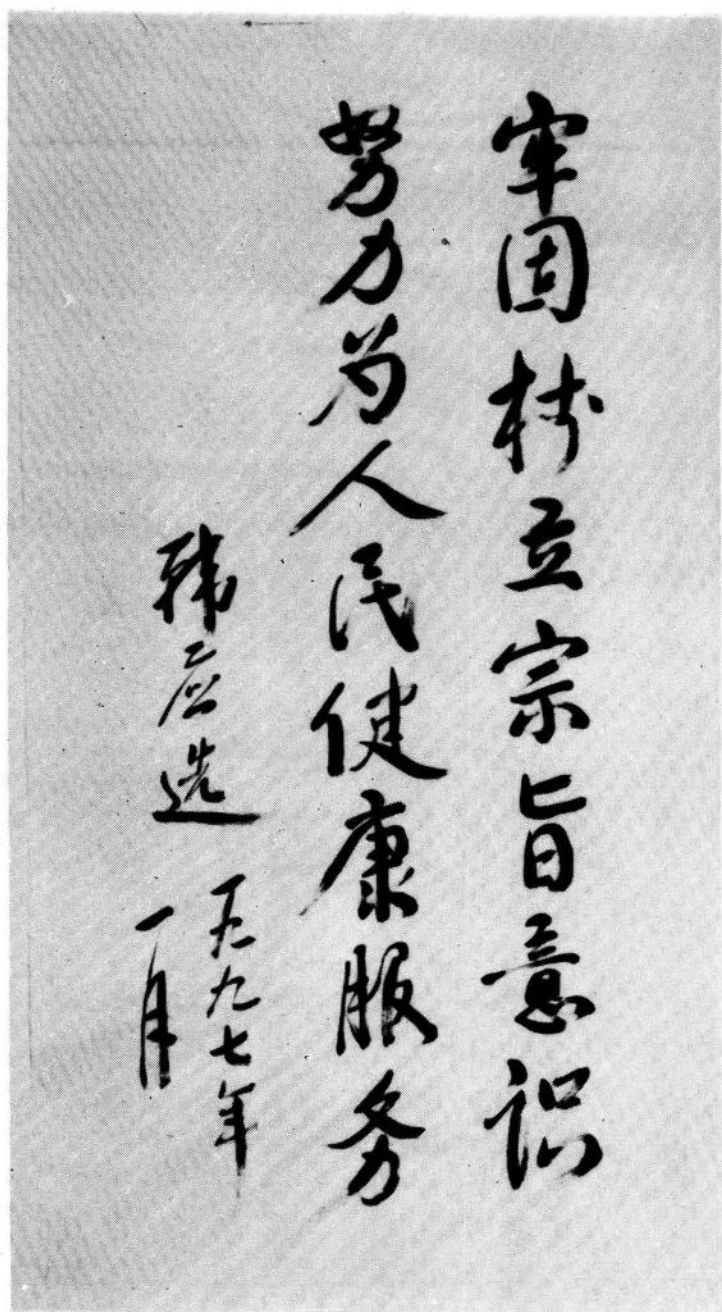 牢固树立宗旨意识
努力为人民健康服务
韩应选
一九九七年
一月